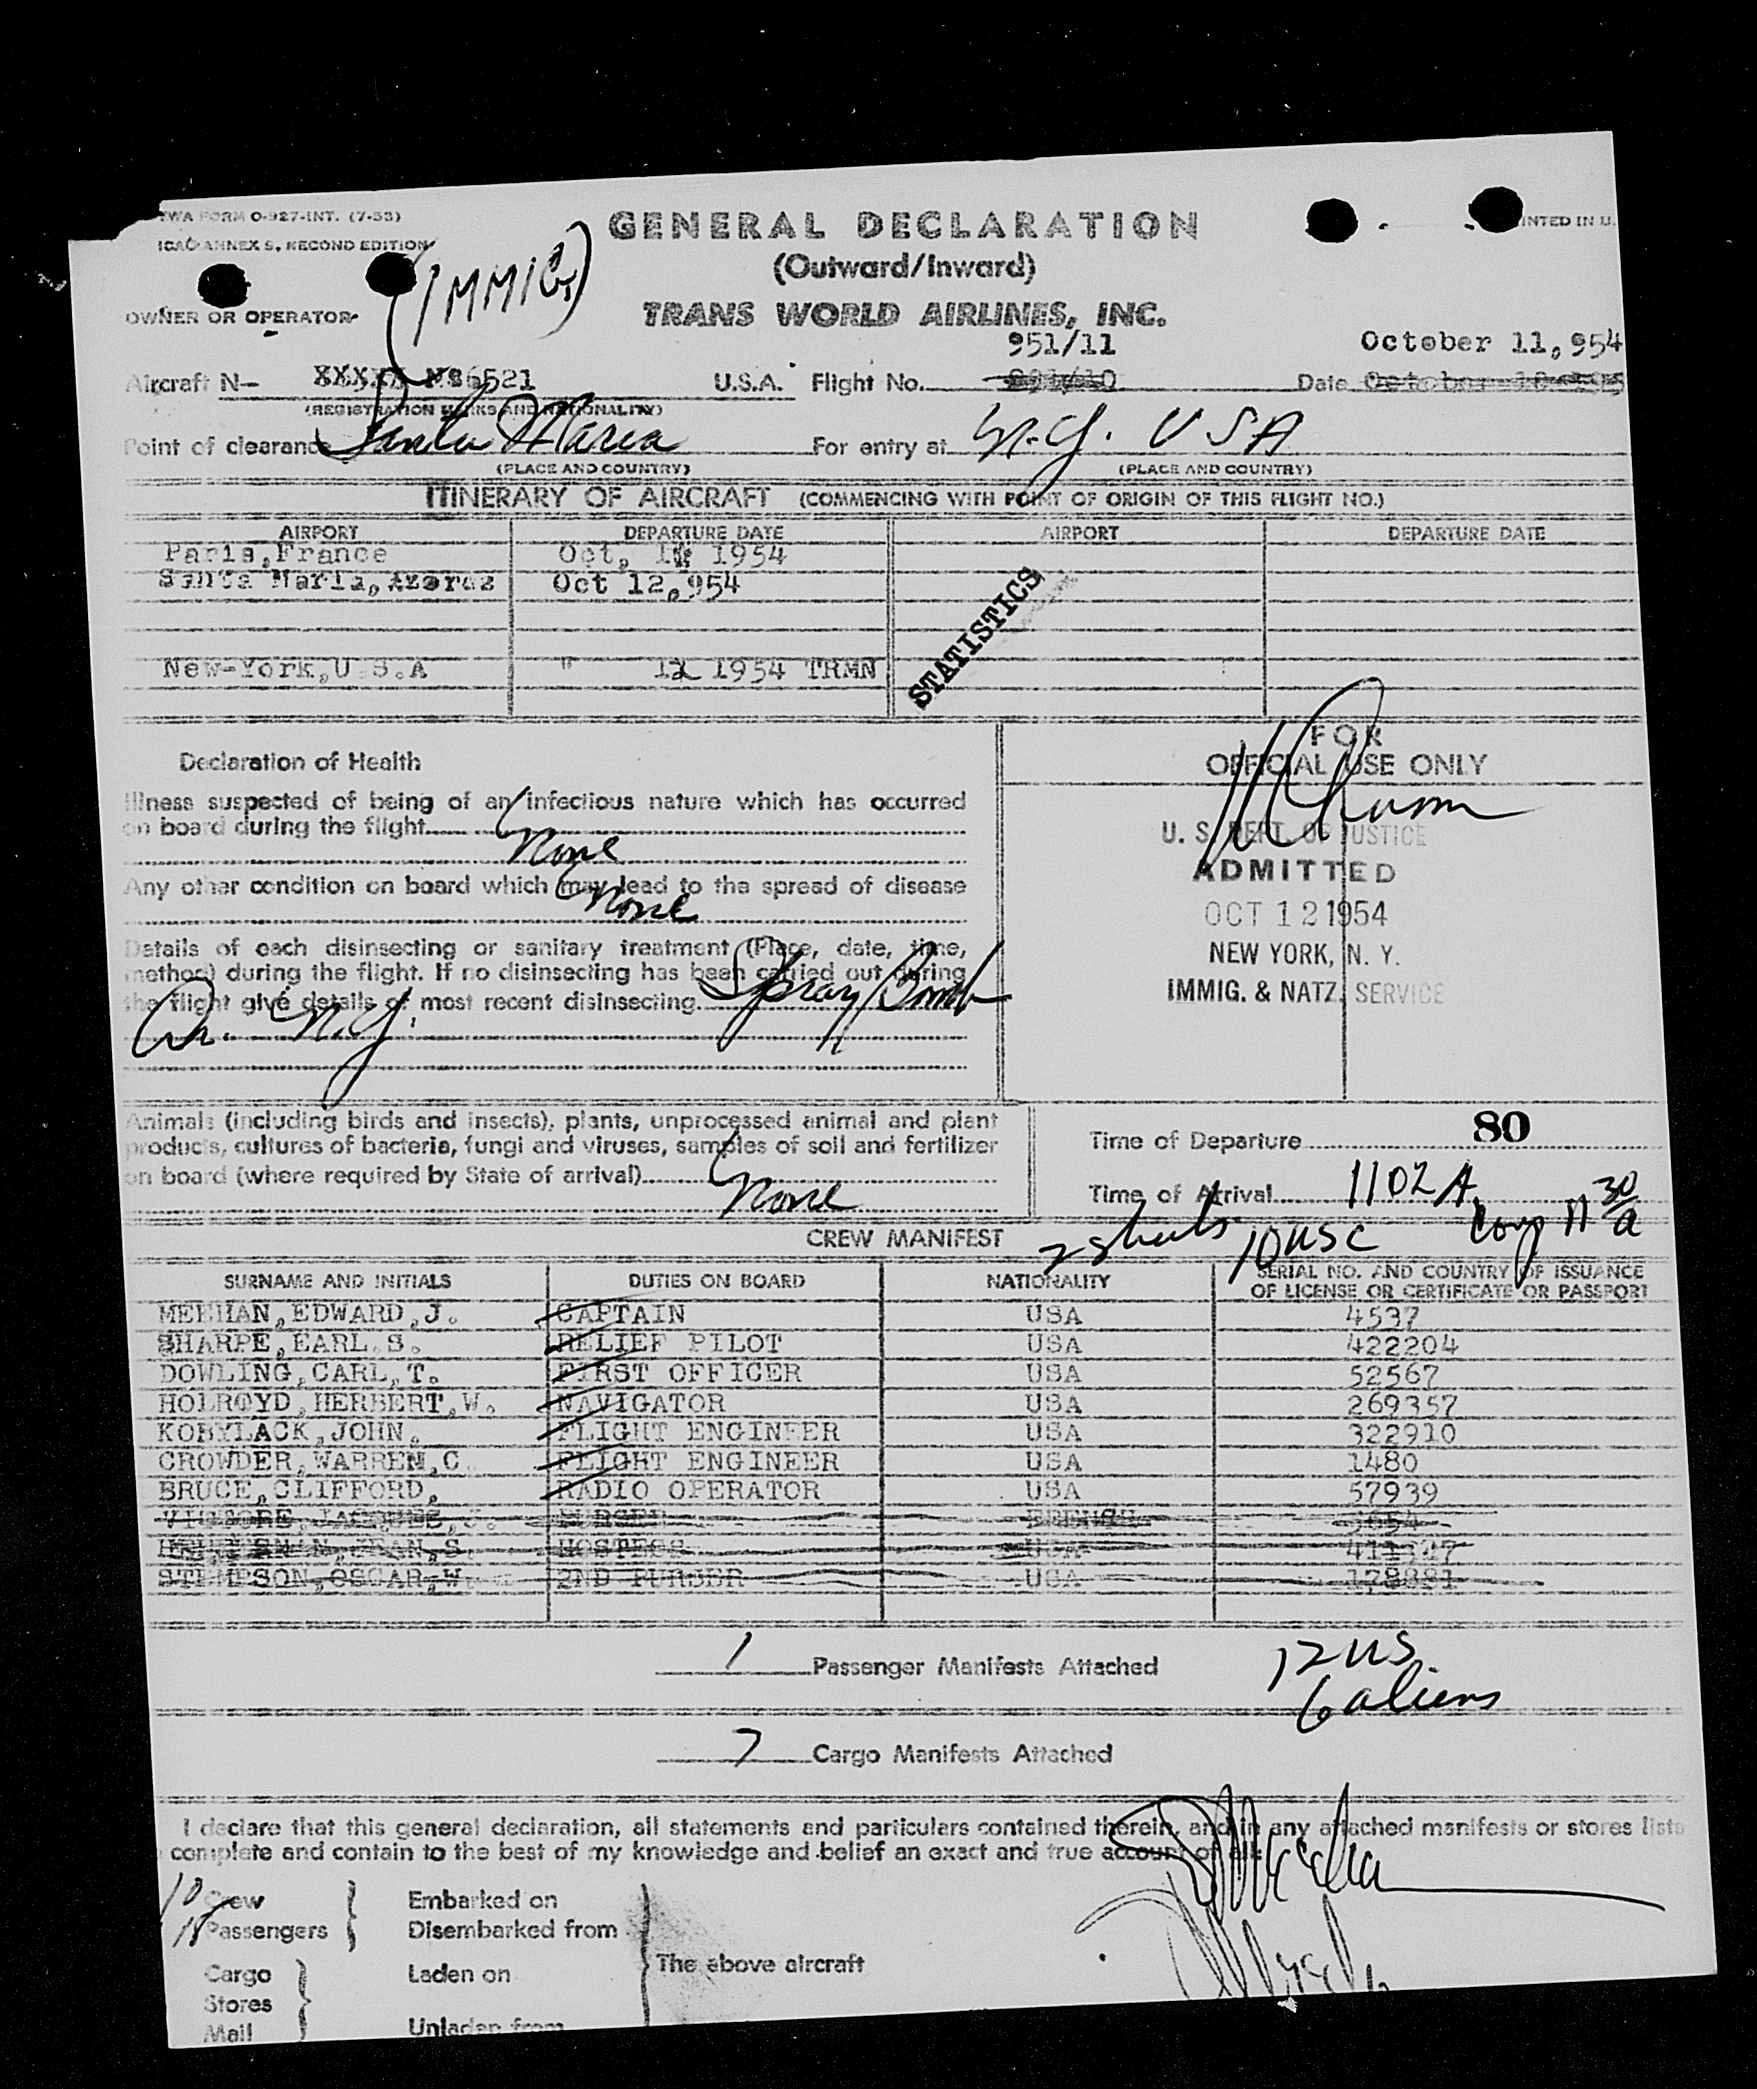 TWA FORM O-927-INT. (7-53)
ICAO ANNEX 9, SECOND EDITION
(IMMIG)
GENERAL DECLARATION
(Outward/Inward)
OWNER OR OPERATOR
TRANS WORLD AIRLINES, INC.
951/11 October 11, 954
Aircraft N- U.S.A. Flight No. Date
(REGISTRATION MARKS AND NATIONALITY)
Point of clearance Santa Maria For entry at N.Y. USA
(PLACE AND COUNTRY) (PLACE AND COUNTRY)
ITINERARY OF AIRCRAFT (COMMENCING WITH POINT OF ORIGIN OF THIS FLIGHT NO.)
AIRPORT DEPARTURE DATE AIRPORT DEPARTURE DATE
Paris,France Oct, 1954
Santa Maria, Azores Oct 12, 954
STATISTICS
New-York,U.S.A " 12 1954 TRMN
Declaration of Health
Illness suspected of being of an infectious nature which has occurred
on board during the flight
None
Any other condition on board which may lead to the spread of disease
None
Details of each disinsecting or sanitary treatment (Place, date, time,
method) during the flight. If no disinsecting has been carried out during
the flight give details of most recent disinsecting Spray Bomb
Ar. N.Y.
FOR
OFFICIAL USE ONLY
U. S. DEPT. OF JUSTICE
ADMITTED
OCT 12 1954
NEW YORK, N. Y.
IMMIG. & NATZ. SERVICE
Animals (including birds and insects), plants, unprocessed animal and plant
products, cultures of bacteria, fungi and viruses, samples of soil and fertilizer
on board (where required by State of arrival)
None
Time of Departure 80
Time of Arrival 1102 A
Comp 11 30/a
CREW MANIFEST 2 sheets 10 USC
SURNAME AND INITIALS DUTIES ON BOARD NATIONALITY SERIAL NO. AND COUNTRY OF ISSUANCE
OF LICENSE OR CERTIFICATE OR PASSPORT
MEEHAN,EDWARD,J. CAPTAIN USA 4537
SHARPE,EARL.S. RELIEF PILOT USA 422204
DOWLING,CARL,T. FIRST OFFICER USA 52567
HOLROYD,HERBERT,W. NAVIGATOR USA 269357
KOBYLACK,JOHN, FLIGHT ENGINEER USA 322910
CROWDER,WARREN,C. FLIGHT ENGINEER USA 1480
BRUCE,CLIFFORD, RADIO OPERATOR USA 57939
PURSER FRENCH
HOSTESS USA
STEMPSON,OSCAR,W. 2ND PURSER USA 178881
1 Passenger Manifests Attached 12 US
6 aliens
7 Cargo Manifests Attached
I declare that this general declaration, all statements and particulars contained therein, and in any attached manifests or stores lists
complete and contain to the best of my knowledge and belief an exact and true account of all:
10 Crew Embarked on
18 Passengers Disembarked from
The above aircraft
Cargo Laden on
Stores
Mail Unladen from